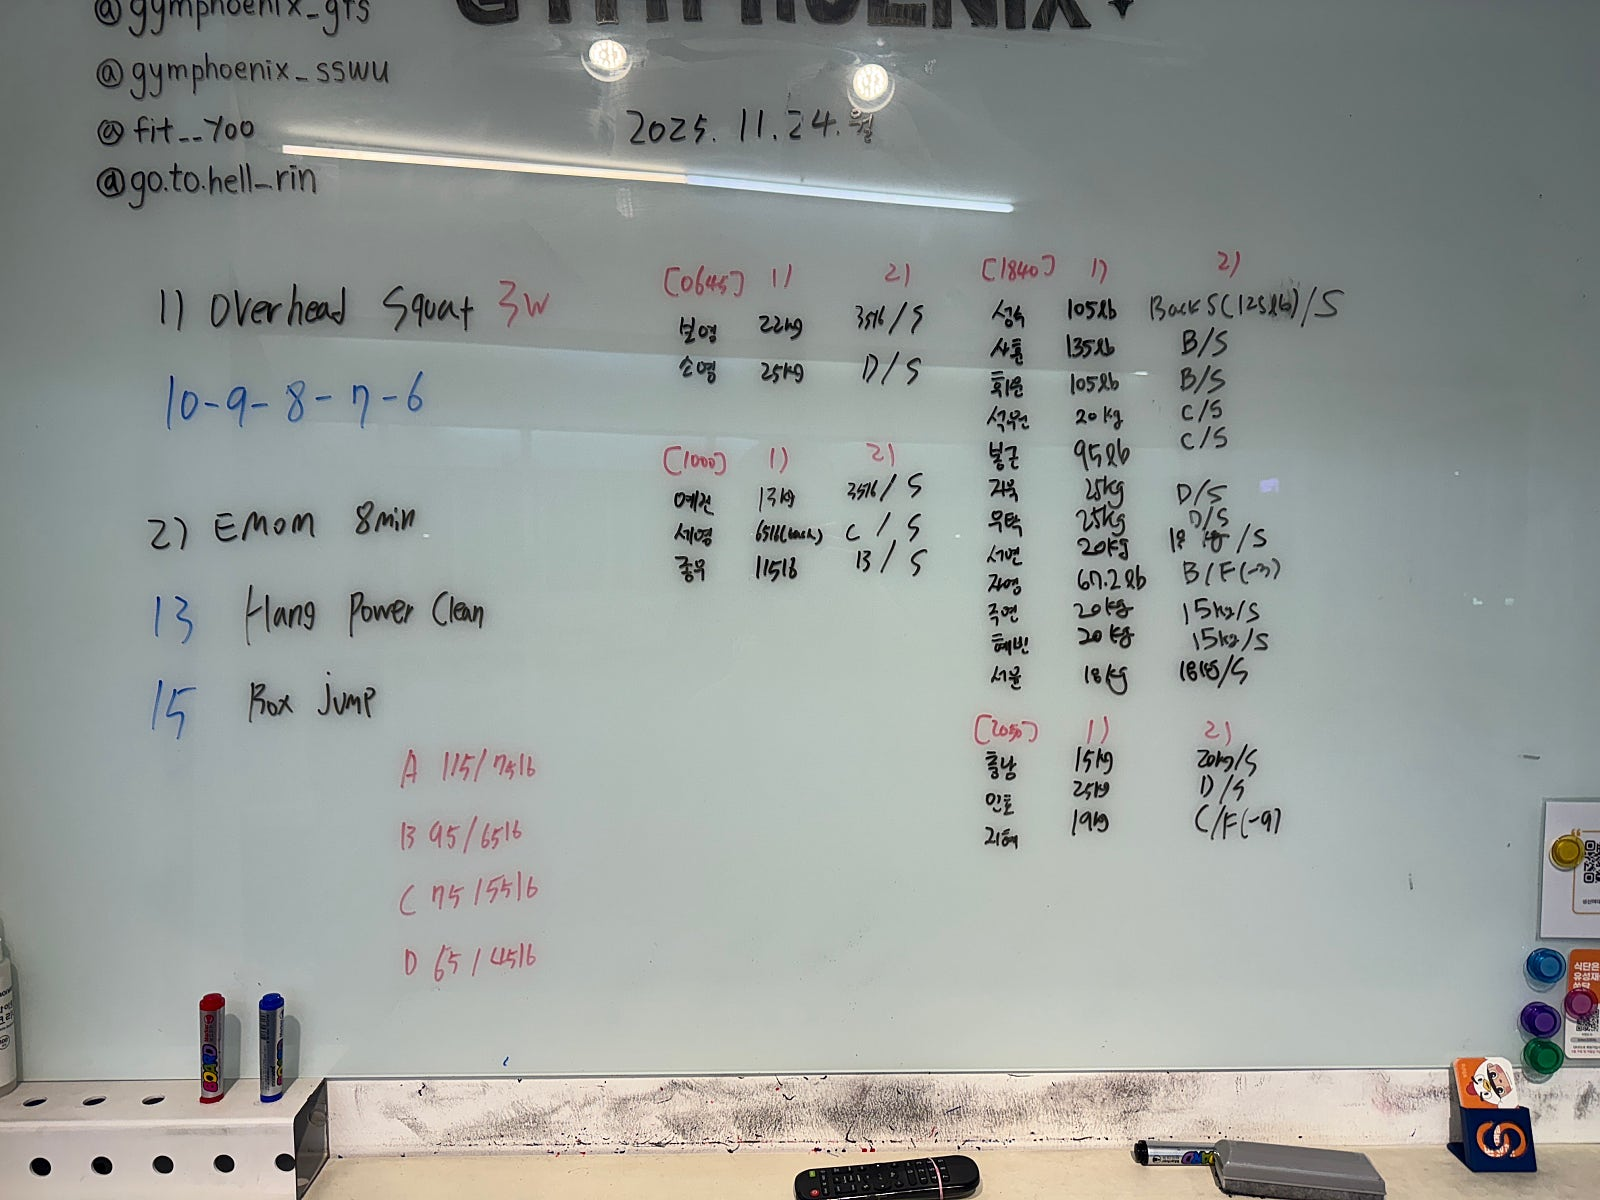 @gymphoenix_gfs
GYMPHOENIX
@gymphoenix_sswu
@fit__yoo
@go.to.hell_rin
2025. 11. 24. 월
1) Overhead Squat 3W
10-9-8-7-6
2) EMOM 8min
13 Hang Power Clean
15 Box jump
A 115/75lb
B 95/65lb
C 75/55lb
D 65/45lb
[0645] 1) 2)
보영 22kg 35lb/S
소영 25kg D/S
[1000] 1) 2)
예진 13kg 35lb/S
세영 65lb(back) C/S
종우 115lb B/S
[1840] 1) 2)
성숙 105lb Back S(125lb)/S
사훈 135lb B/S
희은 105lb B/S
석원 20kg C/S
봉근 95lb C/S
지욱 25kg D/S
우탁 25kg D/S
서연 20kg 18kg/S
자영 67.2lb B/F(-3)
주연 20kg 15kg/S
혜빈 20kg 15kg/S
서율 18kg 18kg/S
[2050] 1) 2)
흥남 15kg 20kg/S
인호 25kg D/S
지혜 19kg C/F(-9)
BOARD
식단은
유성재